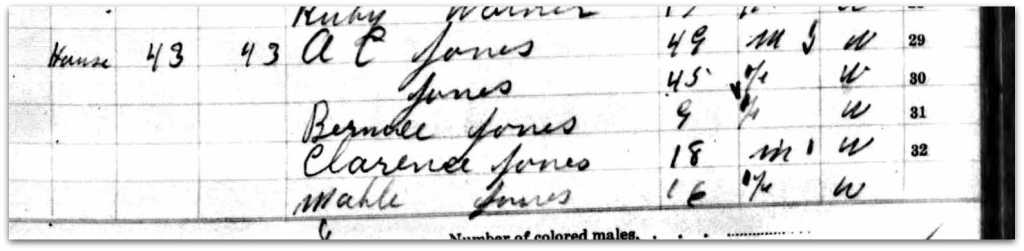 Ruby Warner 17 W
House 43 43 A C Jones 49 m W 29
Jones 45 Fe W 30
Bernice Jones 9 Fe W 31
Clarence Jones 18 m W 32
Mable Jones 16 Fe W
Number of colored males,